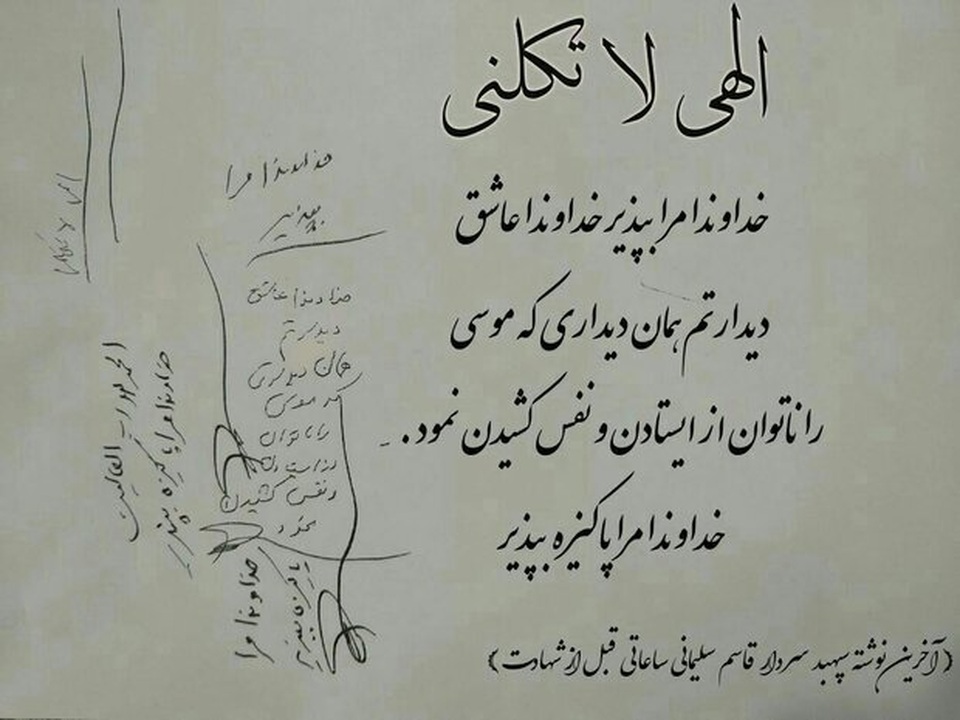 الهی لا تکلنی
خداوندا مرا بپذیر خداوندا عاشق
دیدارتم همان دیداری که موسی
را ناتوان از ایستادن و نفس کشیدن نمود .
خداوندا مرا پاکیزه بپذیر
(آخرین نوشته سپهبد سردار قاسم سلیمانی ساعاتی قبل از شهادت)
خداوندا مرا
بپذیر
خداوندا عاشق
دیدارتم
همان دیداری
که موسی
را ناتوان
از ایستادن
و نفس کشیدن
نمود
خداوندا مرا
پاکیزه بپذیر
خداوندا مرا پاکیزه بپذیر
الحمد لله رب العالمین
الهی لا تکلنی